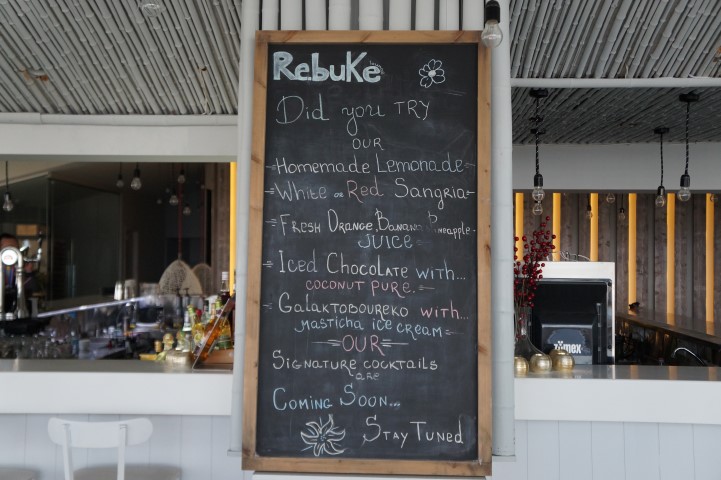 Rebuke
Did you TRY
OUR
Homemade Lemonade
White or Red Sangria
Fresh Orange, Banana, Pineapple
JUICE
Iced Chocolate with...
COCONUT PURE.
Galaktoboureko with...
MASTICHA ICE CREAM
OUR
SIGNATURE COCKTAILS
are
COMING SOON...
STAY TUNED
zumex